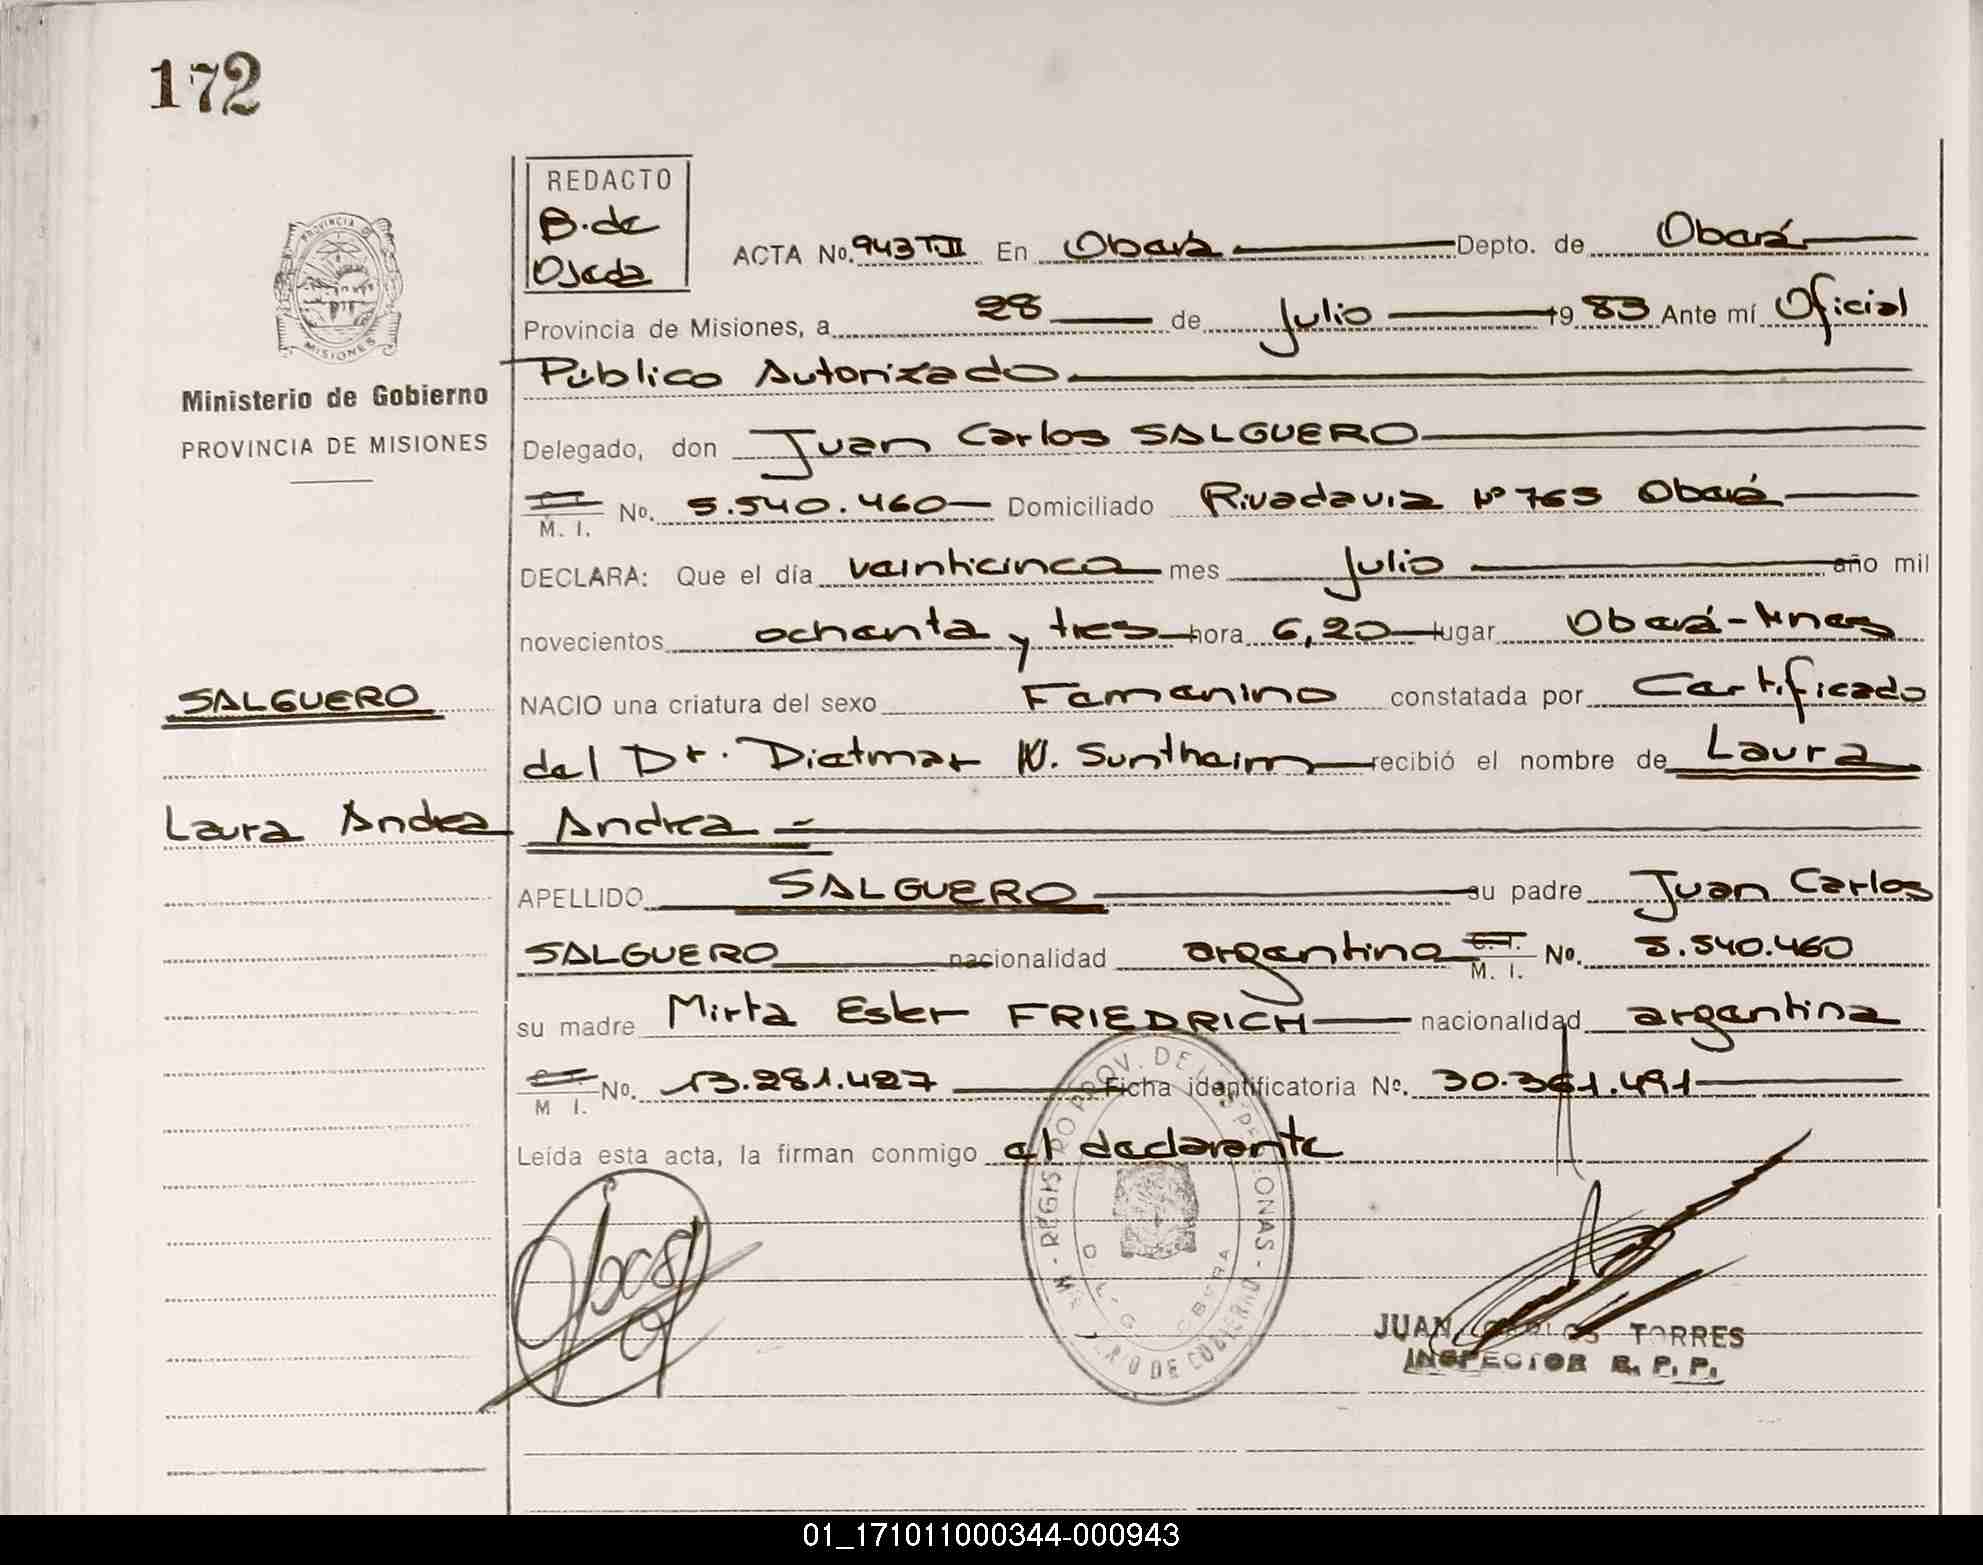 172
REDACTO
B. de
Ojeda
PROVINCIA DE
MISIONES
Ministerio de Gobierno
PROVINCIA DE MISIONES
ACTA No. 943 T.II En Oberá Depto. de Oberá
Provincia de Misiones, a 28 de Julio 19 83 Ante mí Oficial
Público Autorizado
Delegado, don Juan Carlos SALGUERO
M. I. No. 5.540.460 Domiciliado Rivadavia Nº 765 Oberá
DECLARA: Que el día veinticinco mes Julio año mil
novecientos ochenta y tres hora 6,20 lugar Oberá-Mnes
SALGUERO
NACIO una criatura del sexo Femenino constatada por Certificado
del Dr. Dietmar W. Suntheim recibió el nombre de Laura
Laura Andrea
Andrea =
APELLIDO SALGUERO su padre Juan Carlos
SALGUERO nacionalidad argentino C. I. M. I. No. 5.540.460
su madre Mirta Ester FRIEDRICH nacionalidad argentina
M I. No. 13.281.427 Ficha identificatoria No. 30.361.491
Leída esta acta, la firman conmigo el declarante
REGISTRO PROV. DE LAS PERSONAS - MINISTERIO DE GOBIERNO -
OBERA
JUAN CARLOS TORRES
INSPECTOR R. P. P.
01_171011000344-000943